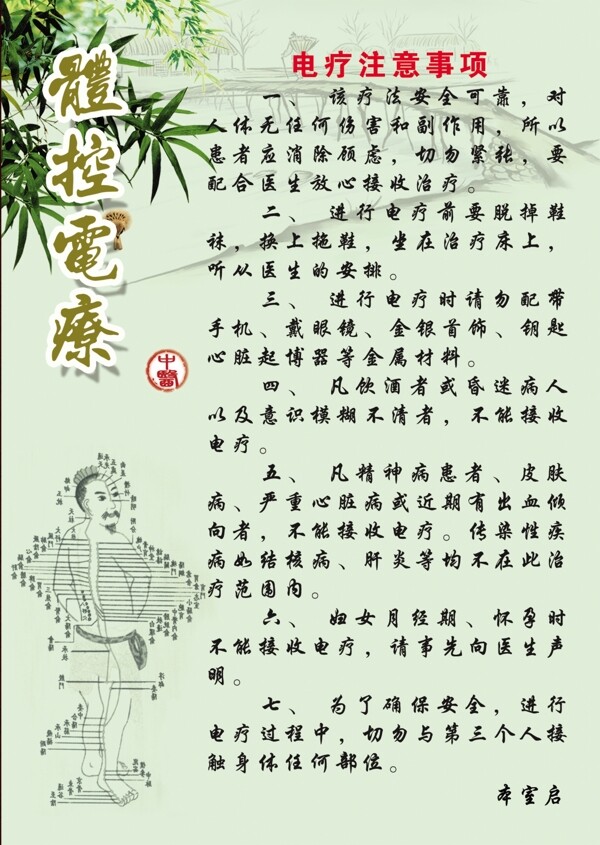 體控電療
中醫
电疗注意事项
一、 该疗法安全可靠，对
人体无任何伤害和副作用，所以
患者应消除顾虑，切勿紧张，要
配合医生放心接收治疗。
二、 进行电疗前要脱掉鞋
袜，换上拖鞋，坐在治疗床上，
听从医生的安排。
三、 进行电疗时请勿配带
手机、戴眼镜、金银首饰、钥匙
心脏起博器等金属材料。
四、 凡饮酒者或昏迷病人
以及意识模糊不清者，不能接收
电疗。
五、 凡精神病患者、皮肤
病、严重心脏病或近期有出血倾
向者，不能接收电疗。传染性疾
病如结核病、肝炎等均不在此治
疗范围内。
六、 妇女月经期、怀孕时
不能接收电疗，请事先向医生声
明。
七、 为了确保安全，进行
电疗过程中，切勿与第三个人接
触身体任何部位。
本室启